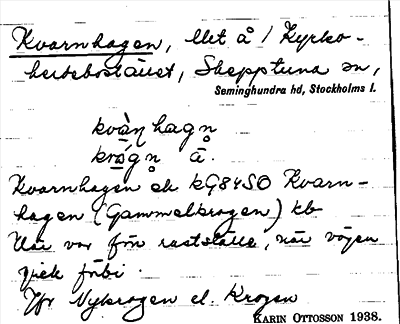 Kvarnhagen, Ubet å / Kyrko-
herdebostället, Skepptuna sn,
Seminghundra hd, Stockholms l.
kvàɳhagn
krǻgn å.
Kvarnhagen ek kG84SO Kvarn-
hagen (Gammelkrogen) kb
Här var förr rastställe, när vägen
gick förbi.
Jfr Nykrogen el. Krogen
KARIN OTTOSSON 1938.